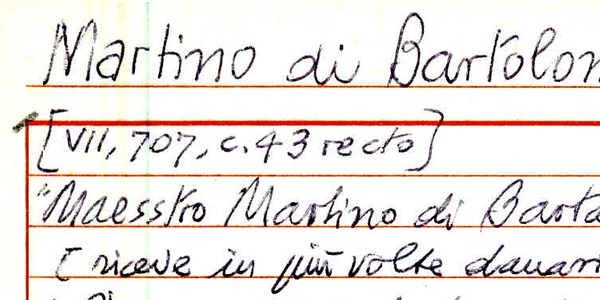 Martino di Bartolom
[VII, 707, c. 43 recto]
"Maesstro Martino di Barto
[riceve in più volte danari